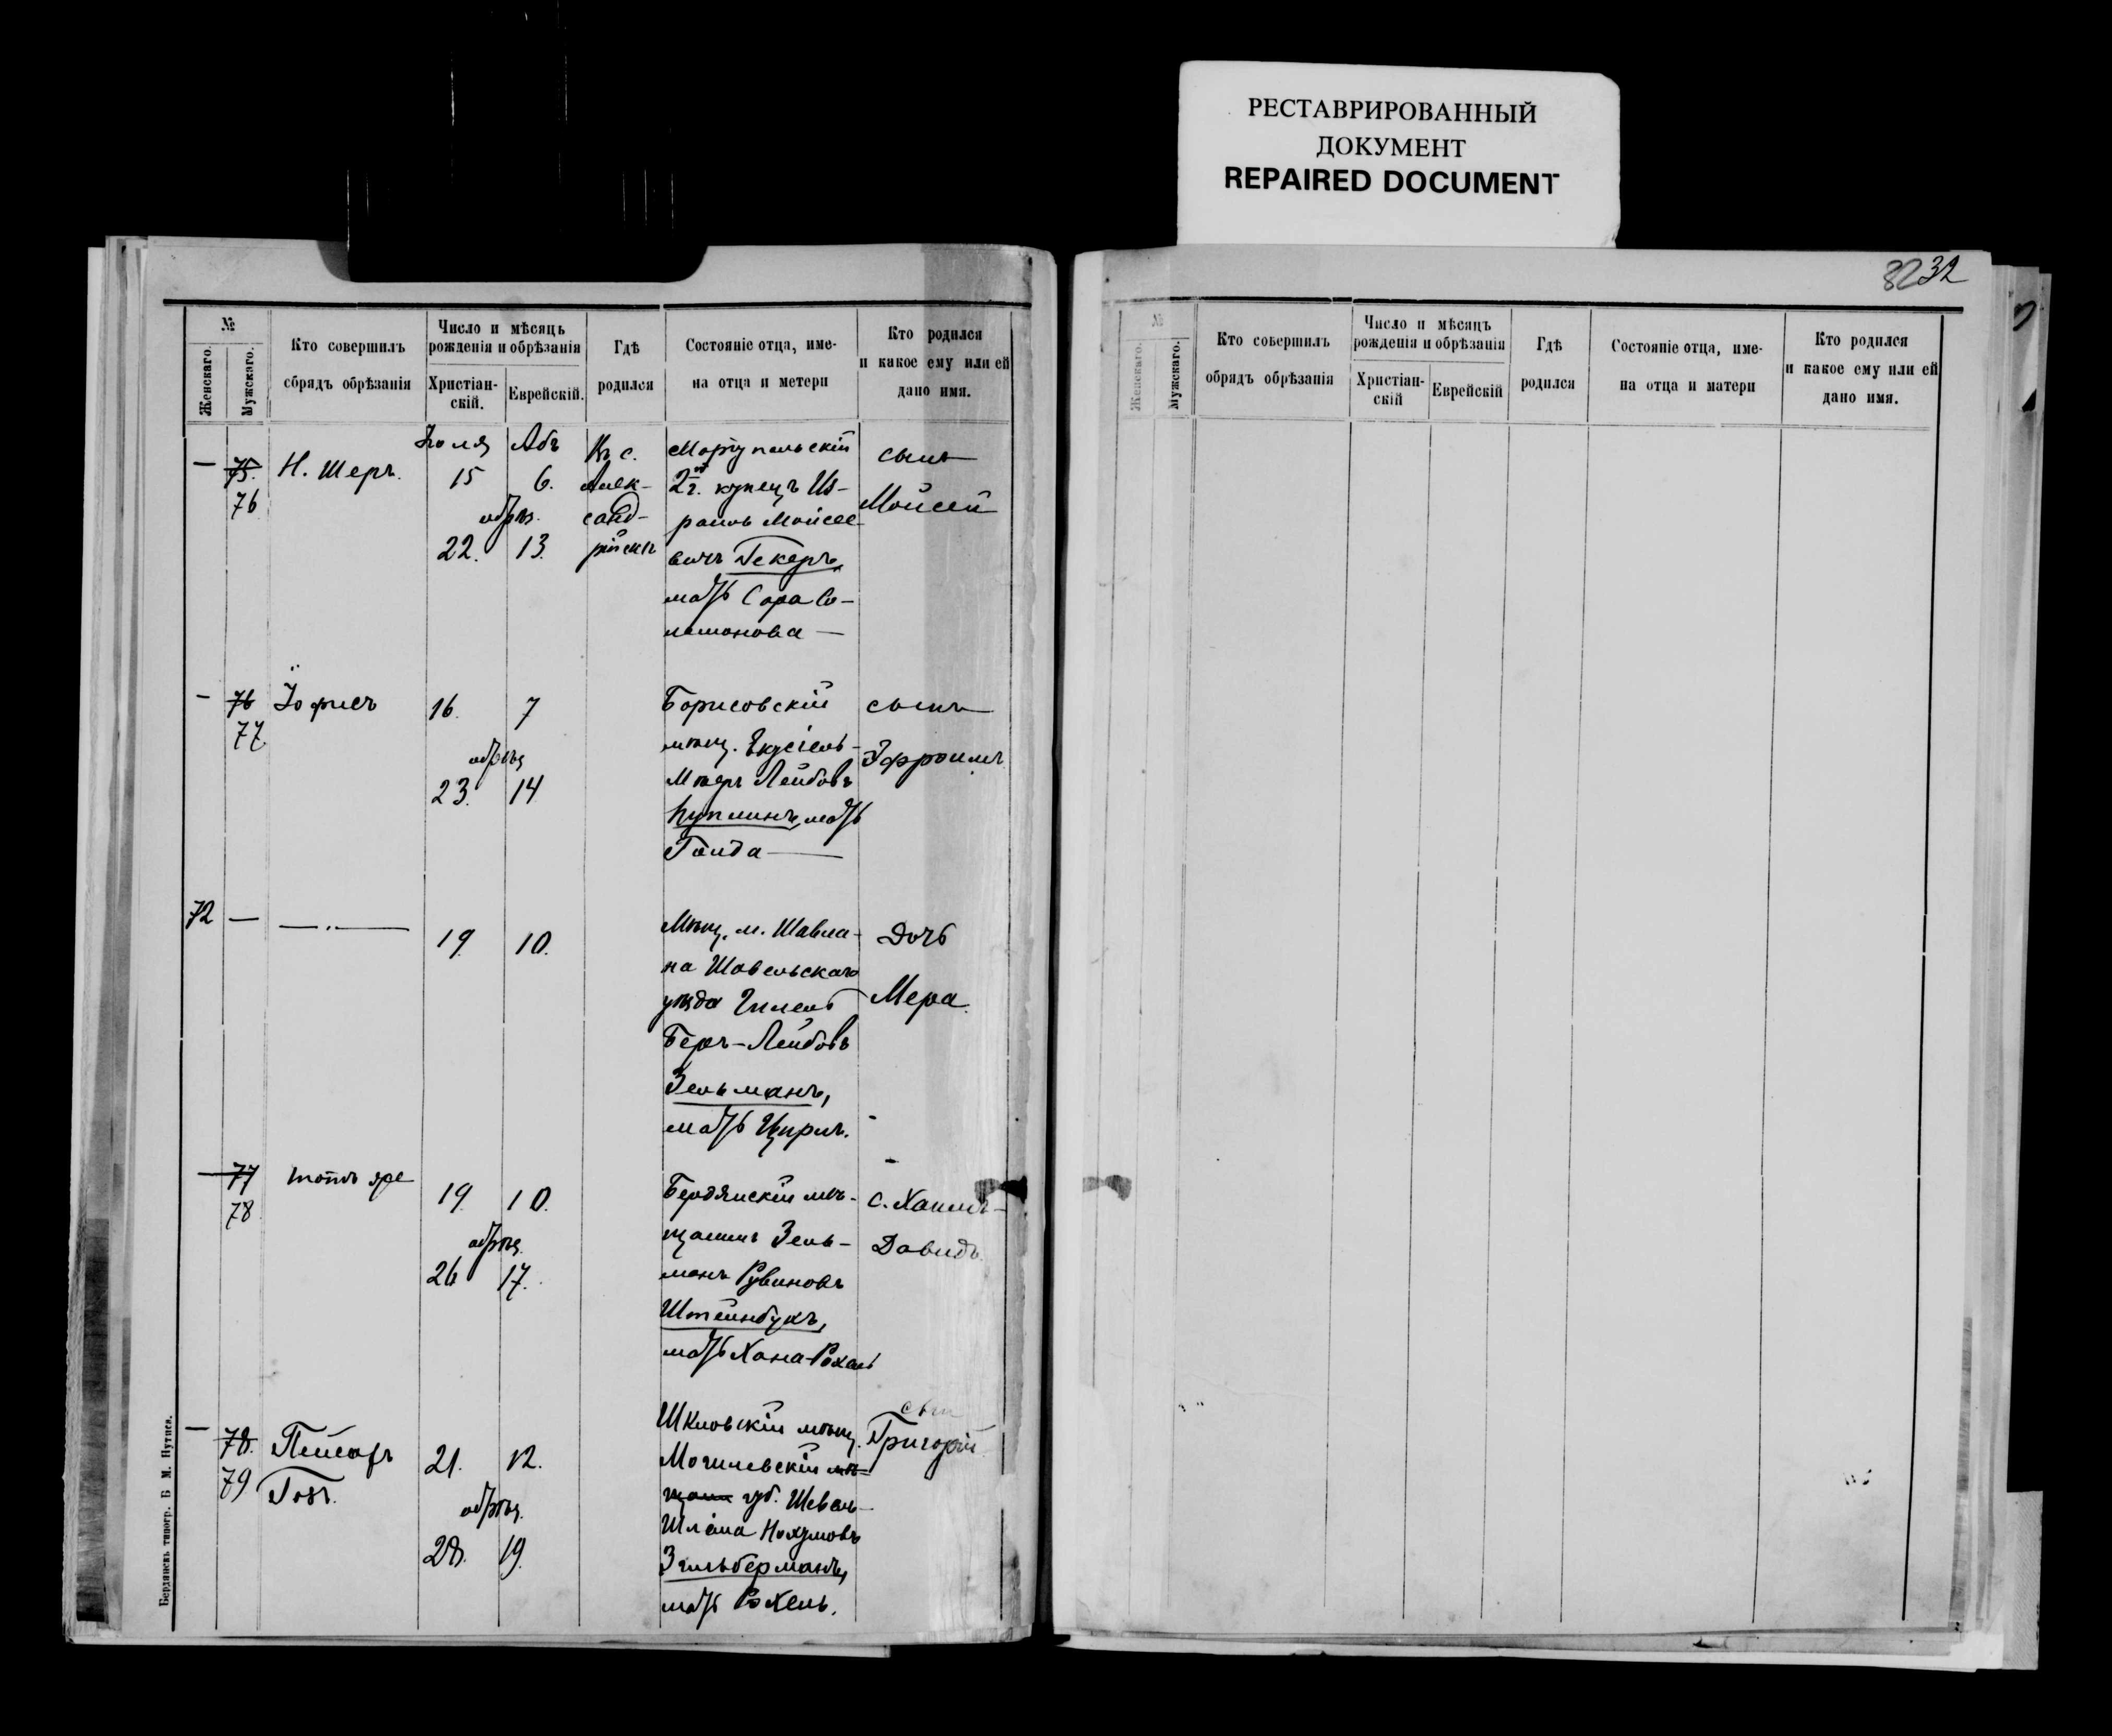 РЕСТАВРИРОВАННЫЙ
ДОКУМЕНТ
REPAIRED DOCUMENT
3232
№
Женскаго.
Мужскаго.
Кто совершилъ
сбрядъ обрѣзанія
Число и мѣсяць
рожденія и обрѣзанія
Христіан-
скій.
Еврейскій.
Гдѣ
родился
Состояніе отца, име-
на отца и метери
Кто родился
и какое ему или ей
дано имя.
— 75. 76
Н. Шеръ.
Іюля Абъ
15 6.
обрѣз.
22. 13.
Въ с.
Алек-
санд-
рійскъ
Маріупольскій
2й г. купецъ Из-
раиль Мойсее-
вичъ Гекеръ,
мать Сара Со-
ломонова —
сынъ
Мойсей
— 76 77
Іофисъ
16. 7
обрѣз
23. 14
Борисовскій
мѣщ. Екусіель-
Мееръ Лейбовъ
мать
Голда —
сынъ
Эфроимъ
72 —
—"—
19. 10.
Мѣщ. м. Шавла-
на Шавельскаго
уѣзда Гилель
Беръ-Лейбовъ
Зельманъ,
мать Ципръ.
Дочь
Мера.
— 77 78
тотъ же
19. 10.
обрѣз.
26 17.
Бердянскій мѣ-
щанинъ Зель-
манъ Рувиновъ
Штейнбукъ,
мать Хана-Рохель
с. Хаимъ-
Давидъ.
— 78. 79
21. 12.
обрѣз.
28. 19.
Шкловскій мѣщ.
Могилевскій мѣ-
щани губ. Шевель-
Шлёма Нохумовъ
Зильберманъ,
мать Рохель.
сын
Григорій
Бердянскъ типогр. Б М. Нутиса.
№
Женскаго.
Мужскаго.
Кто совершилъ
обрядъ обрѣзанія
Число и мѣсяцъ
рожденія и обрѣзанія
Христіан-
скій
Еврейскій
Гдѣ
родился
Состояніе отца, име-
на отца и матери
Кто родился
и какое ему или ей
дано имя.